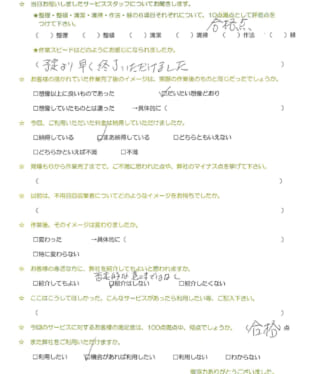 ☆ 当日お伺いしましたサービススタッフについてお聞きします。
★整理・整頓・清潔・清掃・作法・躾の6項目それぞれについて、10点満点として評価点を
つけて下さい。 合格点
( )整理 ( )整頓 ( )清潔 ( )清掃 ( )作法 ( )躾
★作業スピードはどのようにお感じになられましたか。
( 予定より早く終了いただけました )
☆ お客様の描かれていた作業完了後のイメージは、実際の作業後のものと同じだったでしょうか。
□想像以上に良いものであった ☑だいたい想像どおり
□想像していたものとは違った →具体的に( )
☆ 今回、ご利用いただいた料金は納得していただけましたか。
□納得している ☑まあ納得している □どちらともいえない
□どちらかといえば不満 □不満
☆ 見積もりから作業完了までで、ご不満に思われた点や、弊社のマイナス点を挙げて下さい。
( )
☆ 以前は、不用品回収業者についてどのようなイメージをお持ちでしたか。
( )
☆ 作業後、そのイメージは変わりましたか。
□変わった →具体的に( )
□特に変わらない
☆ お客様の身近な方に、弊社を紹介してもよいと思われますか。
否定的な意味ではなく
□紹介してもよい ☑紹介はしない □紹介したくない
☆ ここはこうして欲しかった、こんなサービスがあったら利用したい等、ご記入下さい。
( )
☆ 今回のサービスに対するお客様の満足度は、100点満点中、何点でしょうか。 (合格)点
☆ また弊社をご利用いただけますか。
□利用したい ☑機会があれば利用したい □利用しない □わからない
ありがとうございました。